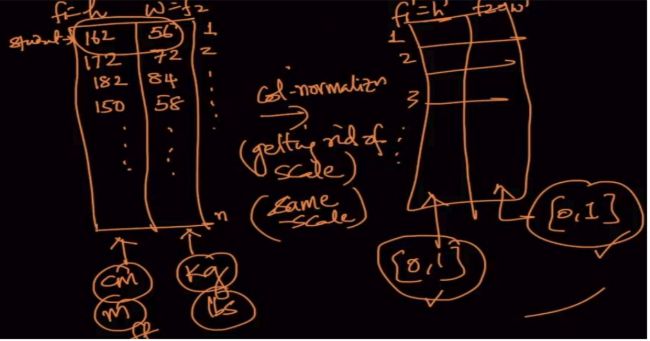 f₁=h w=f₂
student→ 162 56 1
172 72 2
182 84
150 58
n
cm kg
m lbs
ft
col-normalizn
(getting rid of
scale)
(same
scale)
f₁'=h' f₂'=w'
1
2
3
[0,1]
[0,1]